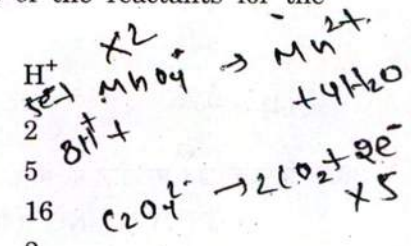 of the reactants for the
×2
H⁺
5e⁻+ MnO4⁻ → Mn²⁺
8H⁺+ +4H2O
2
5
C2O4²⁻ → 2CO2+2e⁻
×5
16